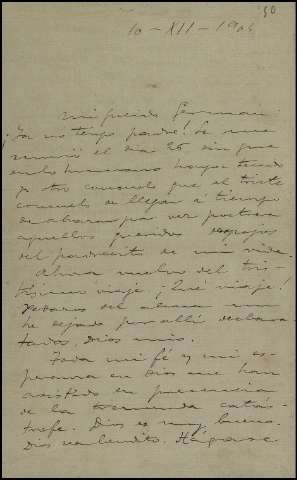 50
10 - XII - 190
Mi querido German:
¡Ya no tengo padre! Se me
murió el día 26, sin que
en lo humano haya tenido
yo otro consuelo que el triste
consuelo de llegar á tiempo
de abrazar por vez postrera
aquellos queridos despojos
del padrecito de mi vida.
Ahora vuelvo del tris-
tísimo viaje. ¡Qué viaje!
Pedazos del alma me
he dejado por allí
Dios mio.
Toda mi fé y mi es-
peranza en Dios me han
asistido en presencia
de la tremenda catás-
trofe. Dios es muy bueno.
Dios sea bendito. Hágase